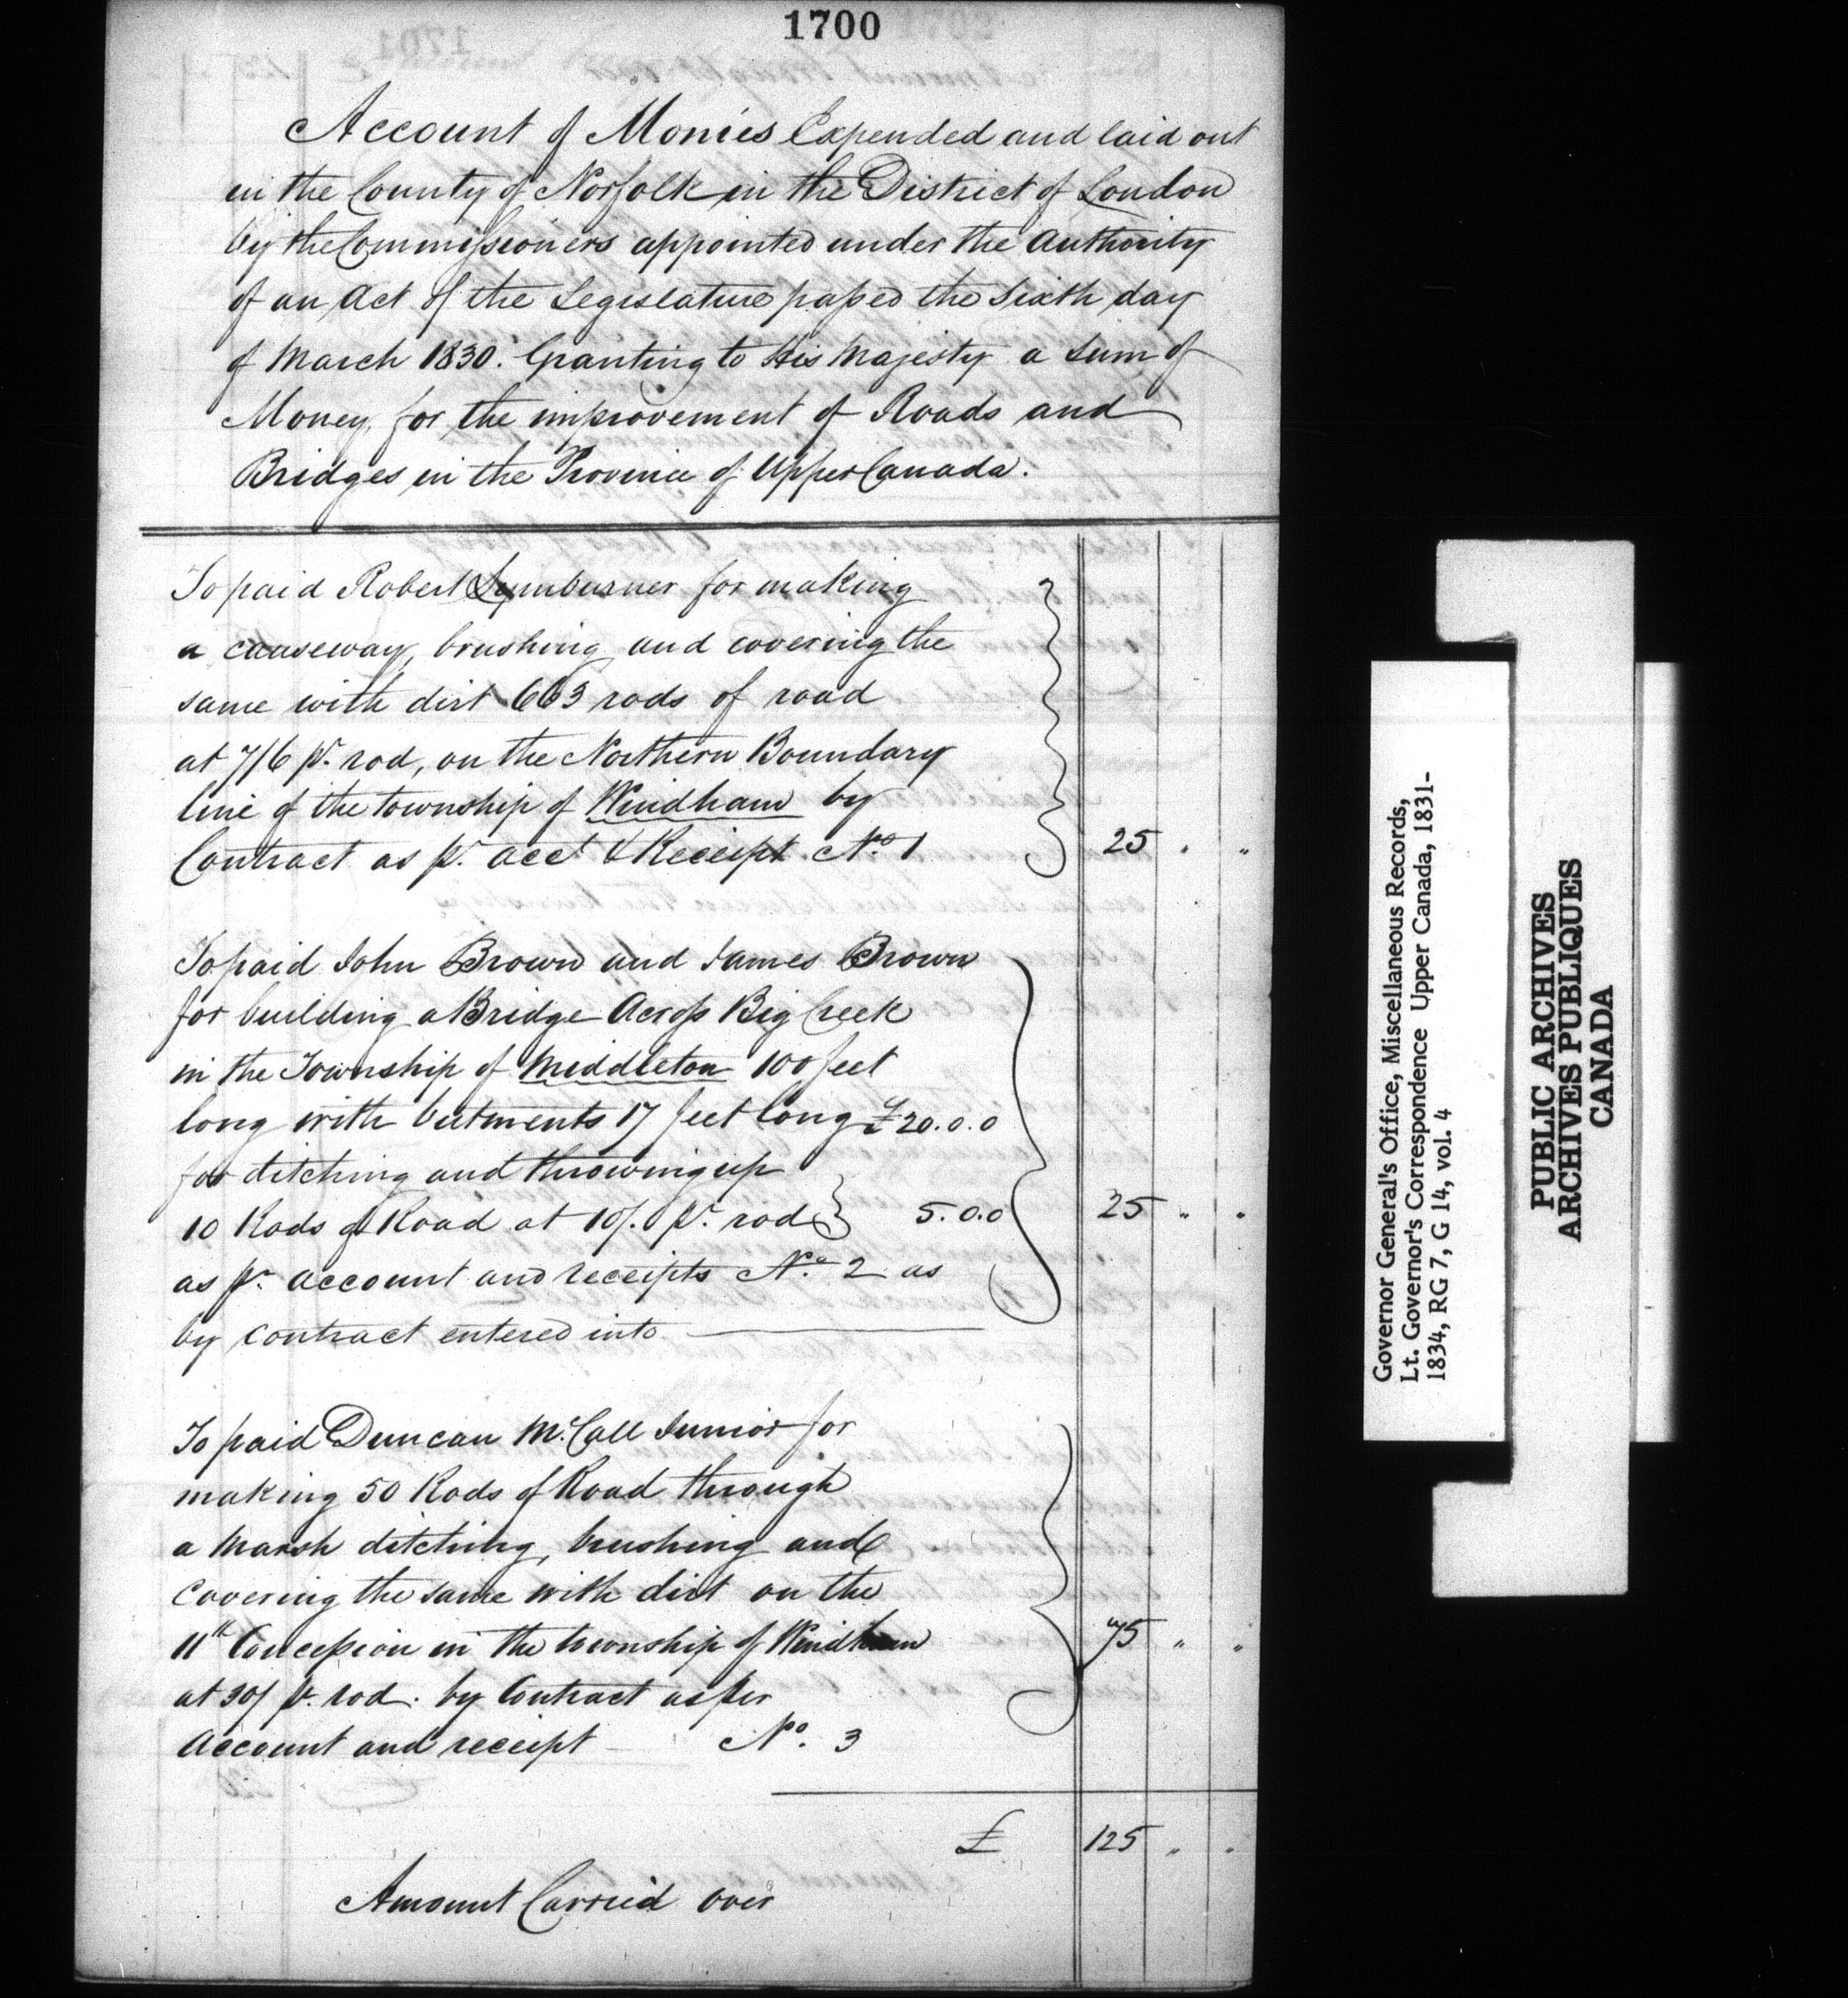 1700
Account of Monies Expended and laid out
in the County of Norfolk in the District of London
by the Commissioners appointed under the Authority
of an Act of the Legislature passed the Sixth day
of March 1830. Granting to His Majesty a Sum of
Money, for the improvement of Roads and
Bridges in the Province of Upper Canada.
To paid Robert Lymburner for making
a causeway, brushing and covering the
same with dirt 663 rods of road
at 7/6 pr. rod, on the Northern Boundary
line of the township of Windham by
Contract as pr. acct & Receipt No. 1 25 " "
To paid John Brown and James Brown
for building a Bridge Across Big Creek
in the Township of Middleton 100 feet
long with butments 17 feet long £20.0.0
for ditching and throwing up
10 Rods of Road at 10/. pr. rod 5.0.0 25 " "
as pr. account and receipts No. 2 as
by contract entered into
To paid Duncan McCall Junior for
making 50 Rods of Road through
a Marsh ditching, brushing and
Covering the same with dirt on the
11th Concession in the township of Windham 75 " "
at 30/ pr. rod. by Contract as per
Account and receipt No. 3
£ 125 " "
Amount Carried over
Governor General's Office, Miscellaneous Records,
Lt. Governor's Correspondence Upper Canada, 1831-
1834, RG 7, G 14, vol. 4
PUBLIC ARCHIVES
ARCHIVES PUBLIQUES
CANADA